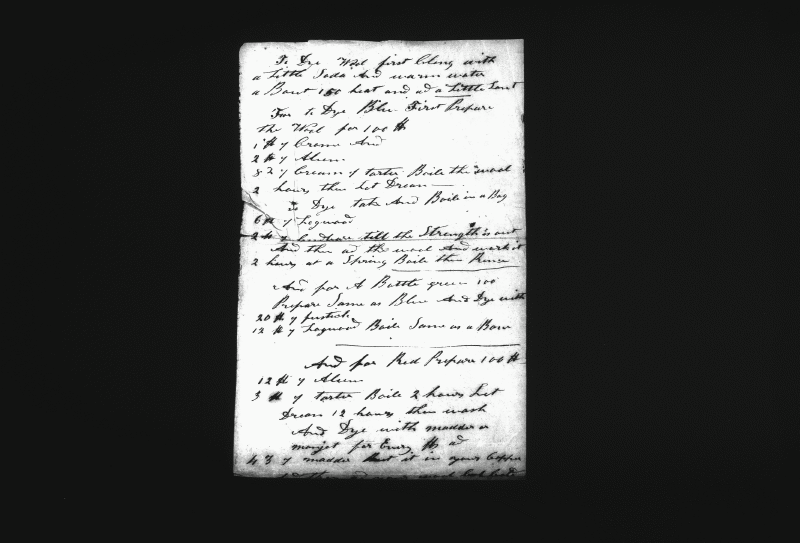 To Dye Wool first Clens with
a Little Soda And warm water
a Bout 150 heat and ad a Little Lant
For to Dye Blue First Prepare
the Wool for 100 ℔
1 ℔ of Crome And
2 ℔ of Alum
8 Z of Cream of tarter Boile the wool
2 hours then Let Dream
to Dye take And Boile in a Bag
6 ℔ of Logwood
2 ℔ of till the Strength is out
And then ad the wool And work it
2 hours at a Spring Boile then Rince
And for A Bottle green 100
Prepare Same as Blue And Dye with
20 ℔ of fustick
12 ℔ of Logwood Boile Same as a Bove
And for Red Prepare 100 ℔
12 ℔ of Alum
3 ℔ of tarter Boile 2 hours Let
Dream 12 hours then wash
And Dye with madder or
munjet for Every ℔ ad
4 Z of madder Put it in your Copper